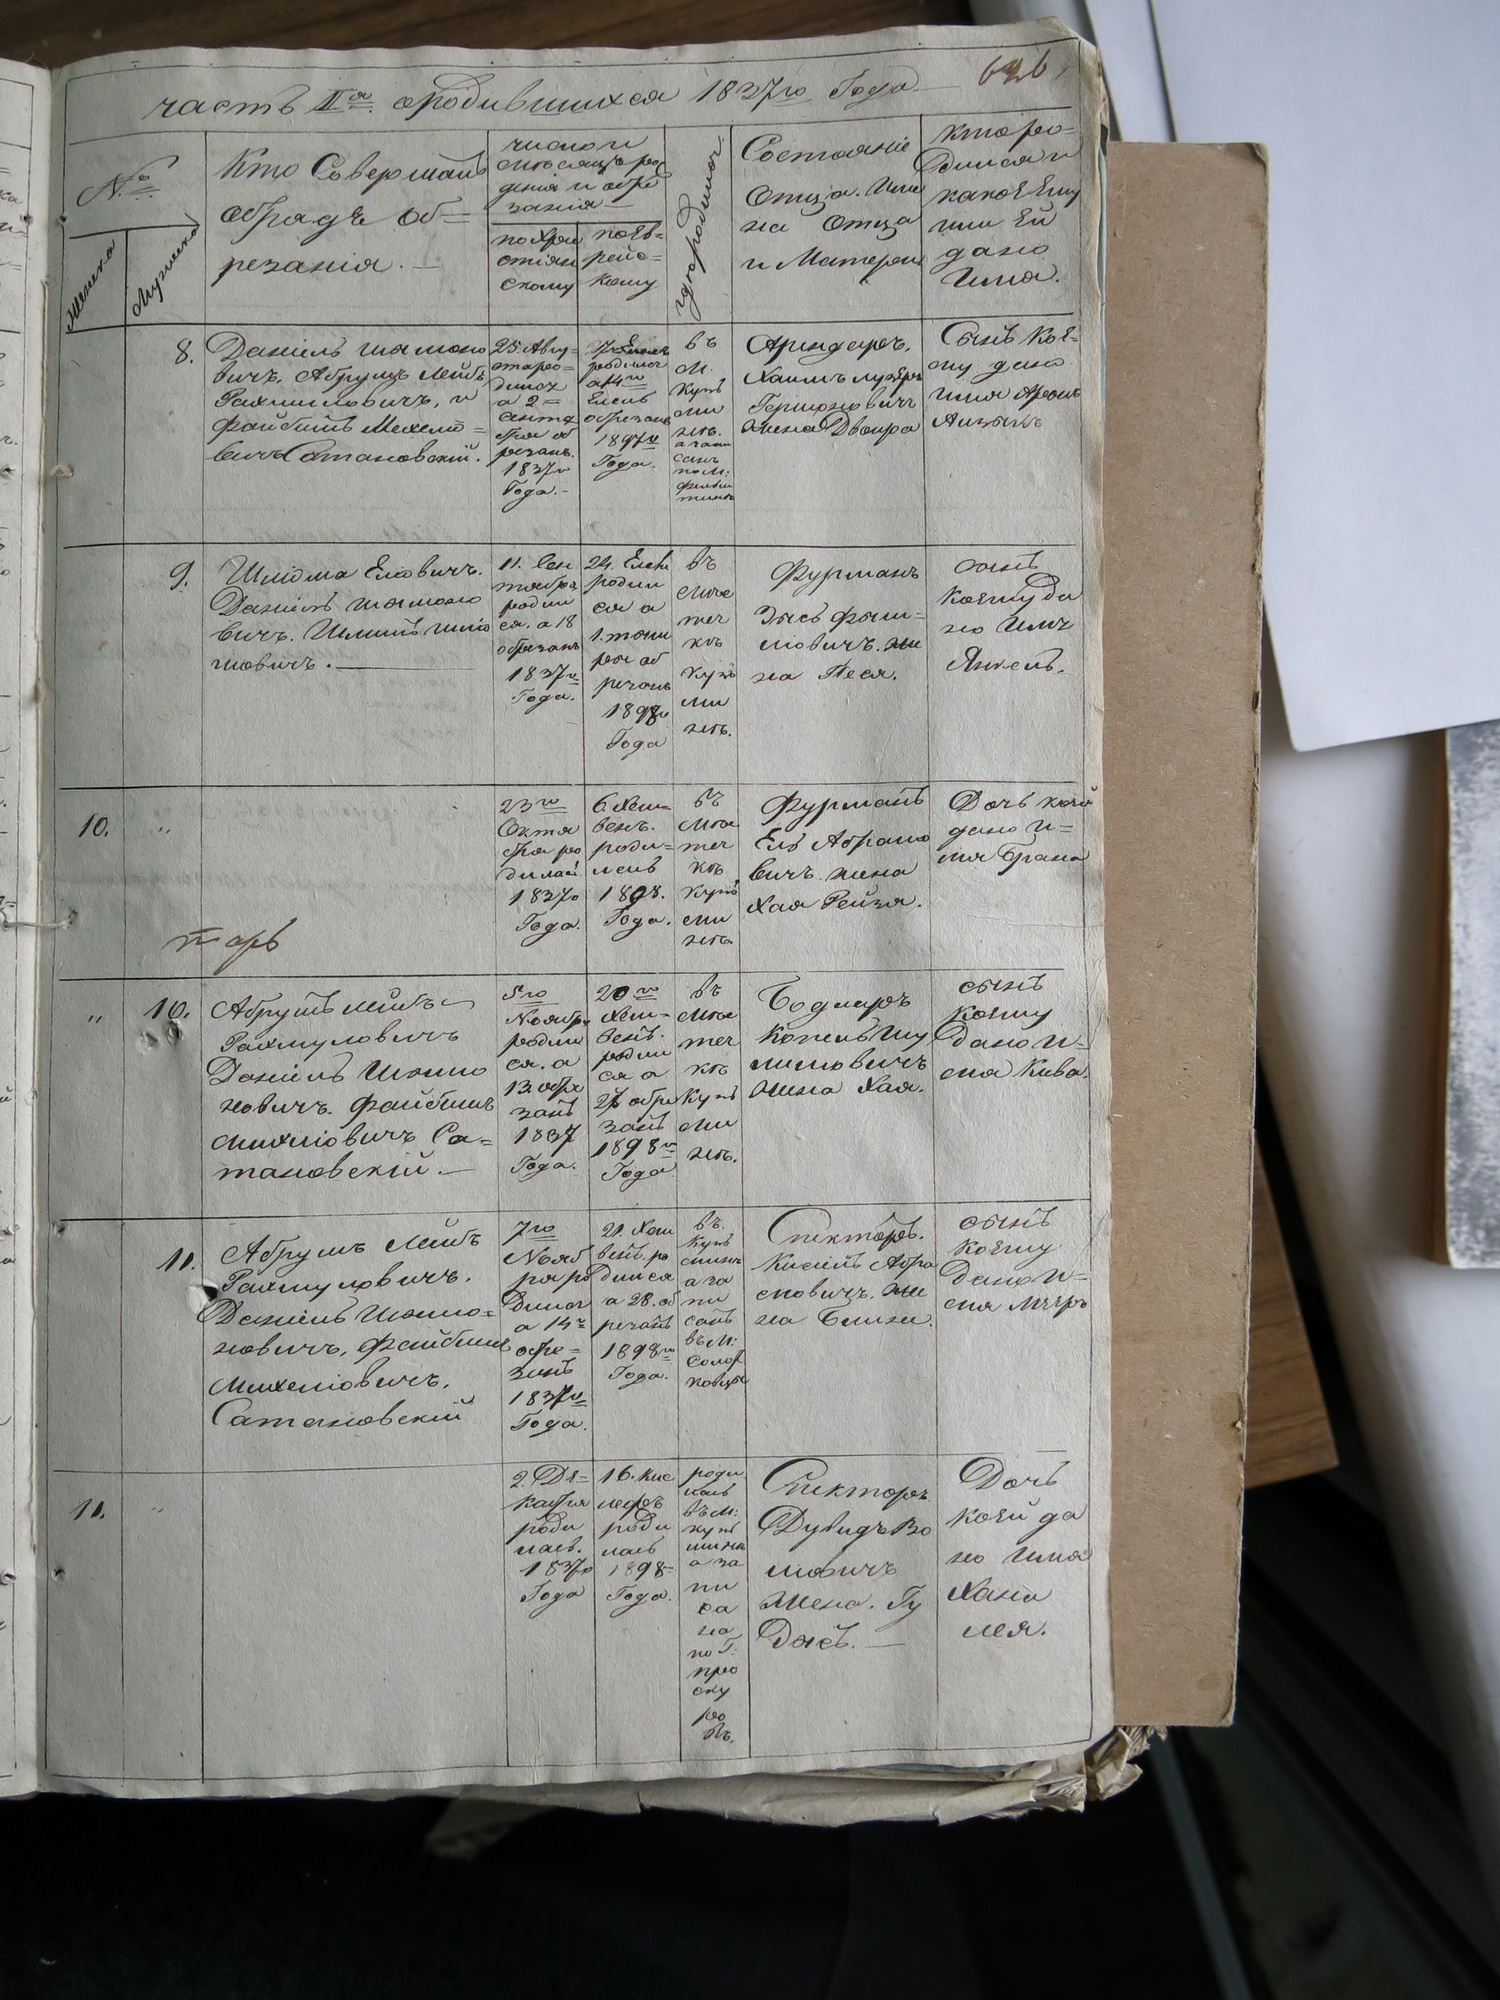 часть IIя о родившихся 1837го Года
626
№
Женска
Мужеска
Кто Совершалъ
обрядъ об=
резанія.
число и
месяцъ рож
денія и обре
занія
по Хри
стіян
скому
по Ев=
рейс=
кому
где родился
Состояніе
Отца. Име
на Отца
и Матери
кто ро=
дился и
какое Ему
или Ей
дано
Имя.
8.
Даніель Шамоно
вичъ, Абрумъ Лейбъ
Рахмиловичъ, и
Файбишъ Мехелю=
вичъ Сатановскій.
25 Авгу=
ста ро=
дился
а 2=
сентя
бря об
резанъ
1837го
Года.
родился
а 14го
Елень
обрезанъ
1897го
Года.
въ
М.
Купъ
ми
не.
а запи
санъ
по М:
Арендаръ.
Хаимъ
Гершковичъ
жена Двойра
Сынъ кое=
му дано
имя
9.
Шлiома Елiовичъ.
Даніель Шамоно
вичъ. Шлiомъ Шлiо
мовичъ.
11. Сен
тября
родил
ся. а 18
обрезанъ
1837го
Года.
24. Елен
родил
ся а
1. тиш
рея об
резанъ
1898го
Года
въ
месте
чке
Купъ
ми
не.
Фурманъ
Зысь Фиш=
лiовичъ. Же
на Песя.
сынъ
коему да
но Имя
Янкель.
10.
"
23го
Октя
бря ро
дилась
1837го
Года.
6. Хеш=
венъ.
роди=
лась
1898.
Года.
въ
месте
чке
Купъ
ми
не
Фурманъ
Ель Абрамо
вичъ жена
Хая Рейзя.
Дочь коей
дано и=
мя Брана
тарь
"
10.
Абрумъ Лейбъ
Рахмуловичъ
Даніель Шамо
новичъ. Файбишъ
Михлiовичъ Са=
тановскій.
5го
Ноября
родил
ся. а
13. обре
занъ
1837
Года.
20го
Хеш=
венъ.
родил
ся а
27 обре
занъ
1898го
Года
въ
месте
чке
Купъ
ми
не.
Бодларъ
Копель Шу
лимовичъ
жена Хая.
сынъ
коему
дано и=
мя Кива.
11.
Абрумъ Лейбъ
Рахмуловичъ.
Даніель Шамо=
новичъ, Файбишъ
Михелiовичъ.
Сатановскій
7го
Нояб
ря ро
дился
а 14го
обре=
занъ
1837го
Года.
21. Хеш
венъ. ро
дился
а 28. об
резанъ
1898го
Года.
въ.
Купъ
мине
а за
пи
санъ
въ М:
Спекторъ.
Кисель Абра
мовичъ. Же
на Блима.
сынъ
коему
дано и=
мя Мееръ
11.
"
2. Де=
кабря
роди
лась.
1837го
Года
16. кис
лефъ
роди
лась
1898
Года.
роди
лась
въ М:
купъ
мине
а за
пи
са
на
по Г.
про
ску
ро
ве.
Спекторъ
Дувидъ Во
лiовичъ
Жена. Гу
дась.
Дочь
коей да
но Имя
Хана
лея.